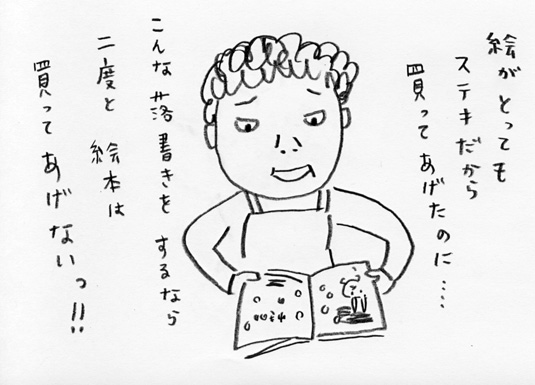 絵がとっても
ステキだから
買ってあげたのに……
こんな落書きをするなら
二度と 絵本は
買ってあげないっ!!